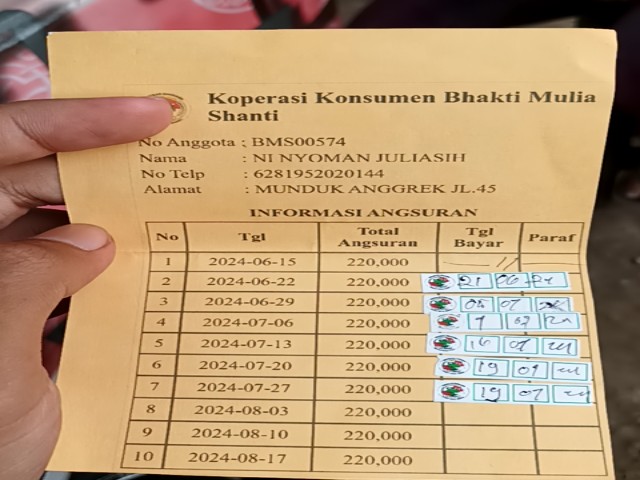 Koperasi Konsumen Bhakti Mulia
Shanti
No Anggota : BMS00574
Nama : NI NYOMAN JULIASIH
No Telp : 6281952020144
Alamat : MUNDUK ANGGREK JL.45
INFORMASI ANGSURAN
No Tgl Total Angsuran Tgl Bayar Paraf
1 2024-06-15 220,000
2 2024-06-22 220,000 21 06 24
3 2024-06-29 220,000 07
4 2024-07-06 220,000
5 2024-07-13 220,000 07
6 2024-07-20 220,000 19 07
7 2024-07-27 220,000 19 07
8 2024-08-03 220,000
9 2024-08-10 220,000
10 2024-08-17 220,000